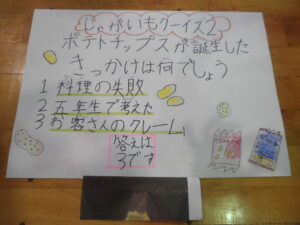 じゃがいもクイズ2
ポテトチップスが誕生した
きっかけは何でしょう
1 料理の失敗
2 五年生で考えた
3 お客さんのクレーム
答えは
3です